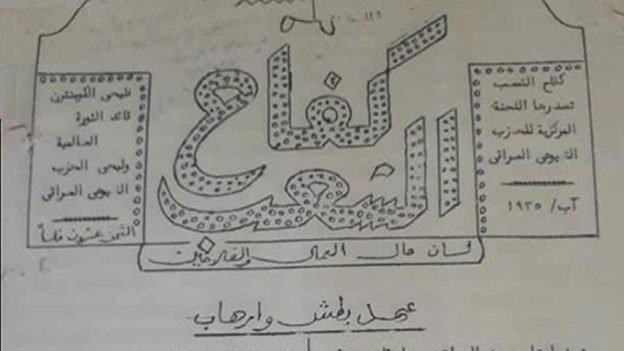 كفاح الشعب
كفاح الشعب
تصدرها اللجنة
المركزية للحزب
الشيوعي العراقي
آب/ ١٩٣٥
فليحى الكومنترن
قائد الثورة
العالمية
وليحى الحزب
الشيوعي العراقي
الثمن عشرون فلساً
لسان حال العمال والفلاحين
عهد بطش وارهاب